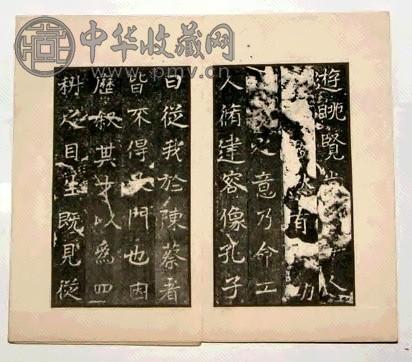 中华收藏网
遊眺覽尚人
有
之意乃命工
人脩建容像孔子
曰從我於陳蔡者
皆不得門也因
歷叙其才以爲四
科之目生既見從